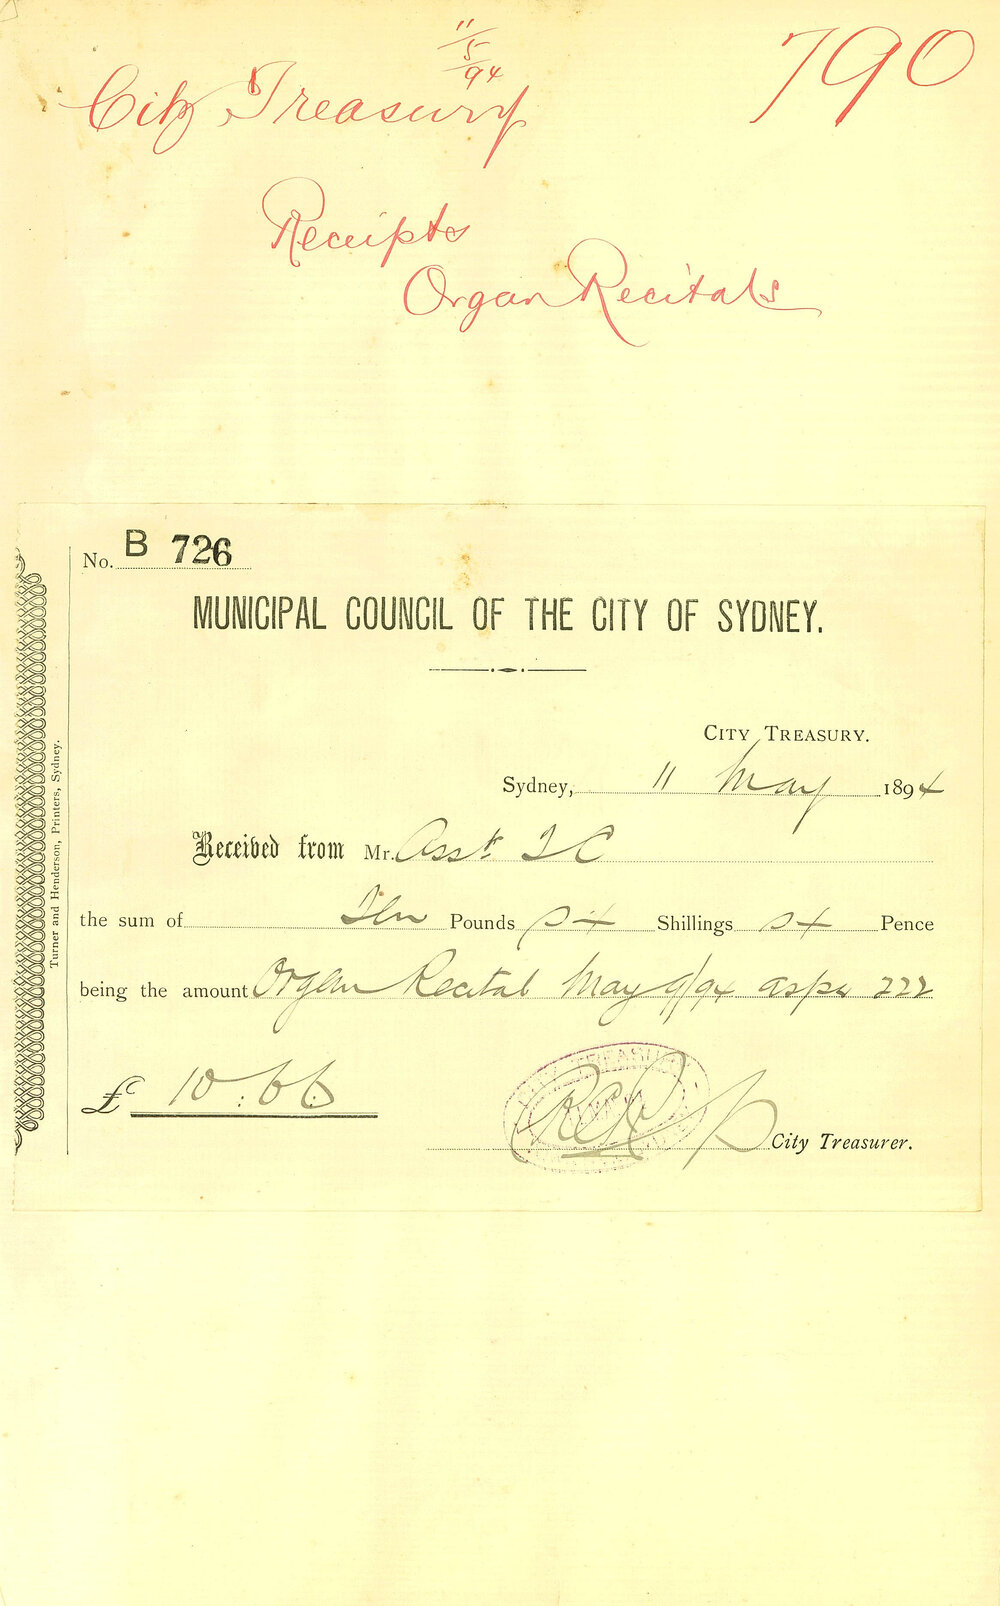 11/5/94
790
City Treasury
Receipts
Organ Recitals
No. B 726
MUNICIPAL COUNCIL OF THE CITY OF SYDNEY.
CITY TREASURY.
Sydney, 11 May 1894
Received from Mr. Asst. T C
the sum of Ten Pounds six Shillings six Pence
being the amount Organ Recital May 9/94 as per 222
£ 10: 6 6
City Treasurer.
CITY TREASURY
Turner and Henderson, Printers, Sydney.